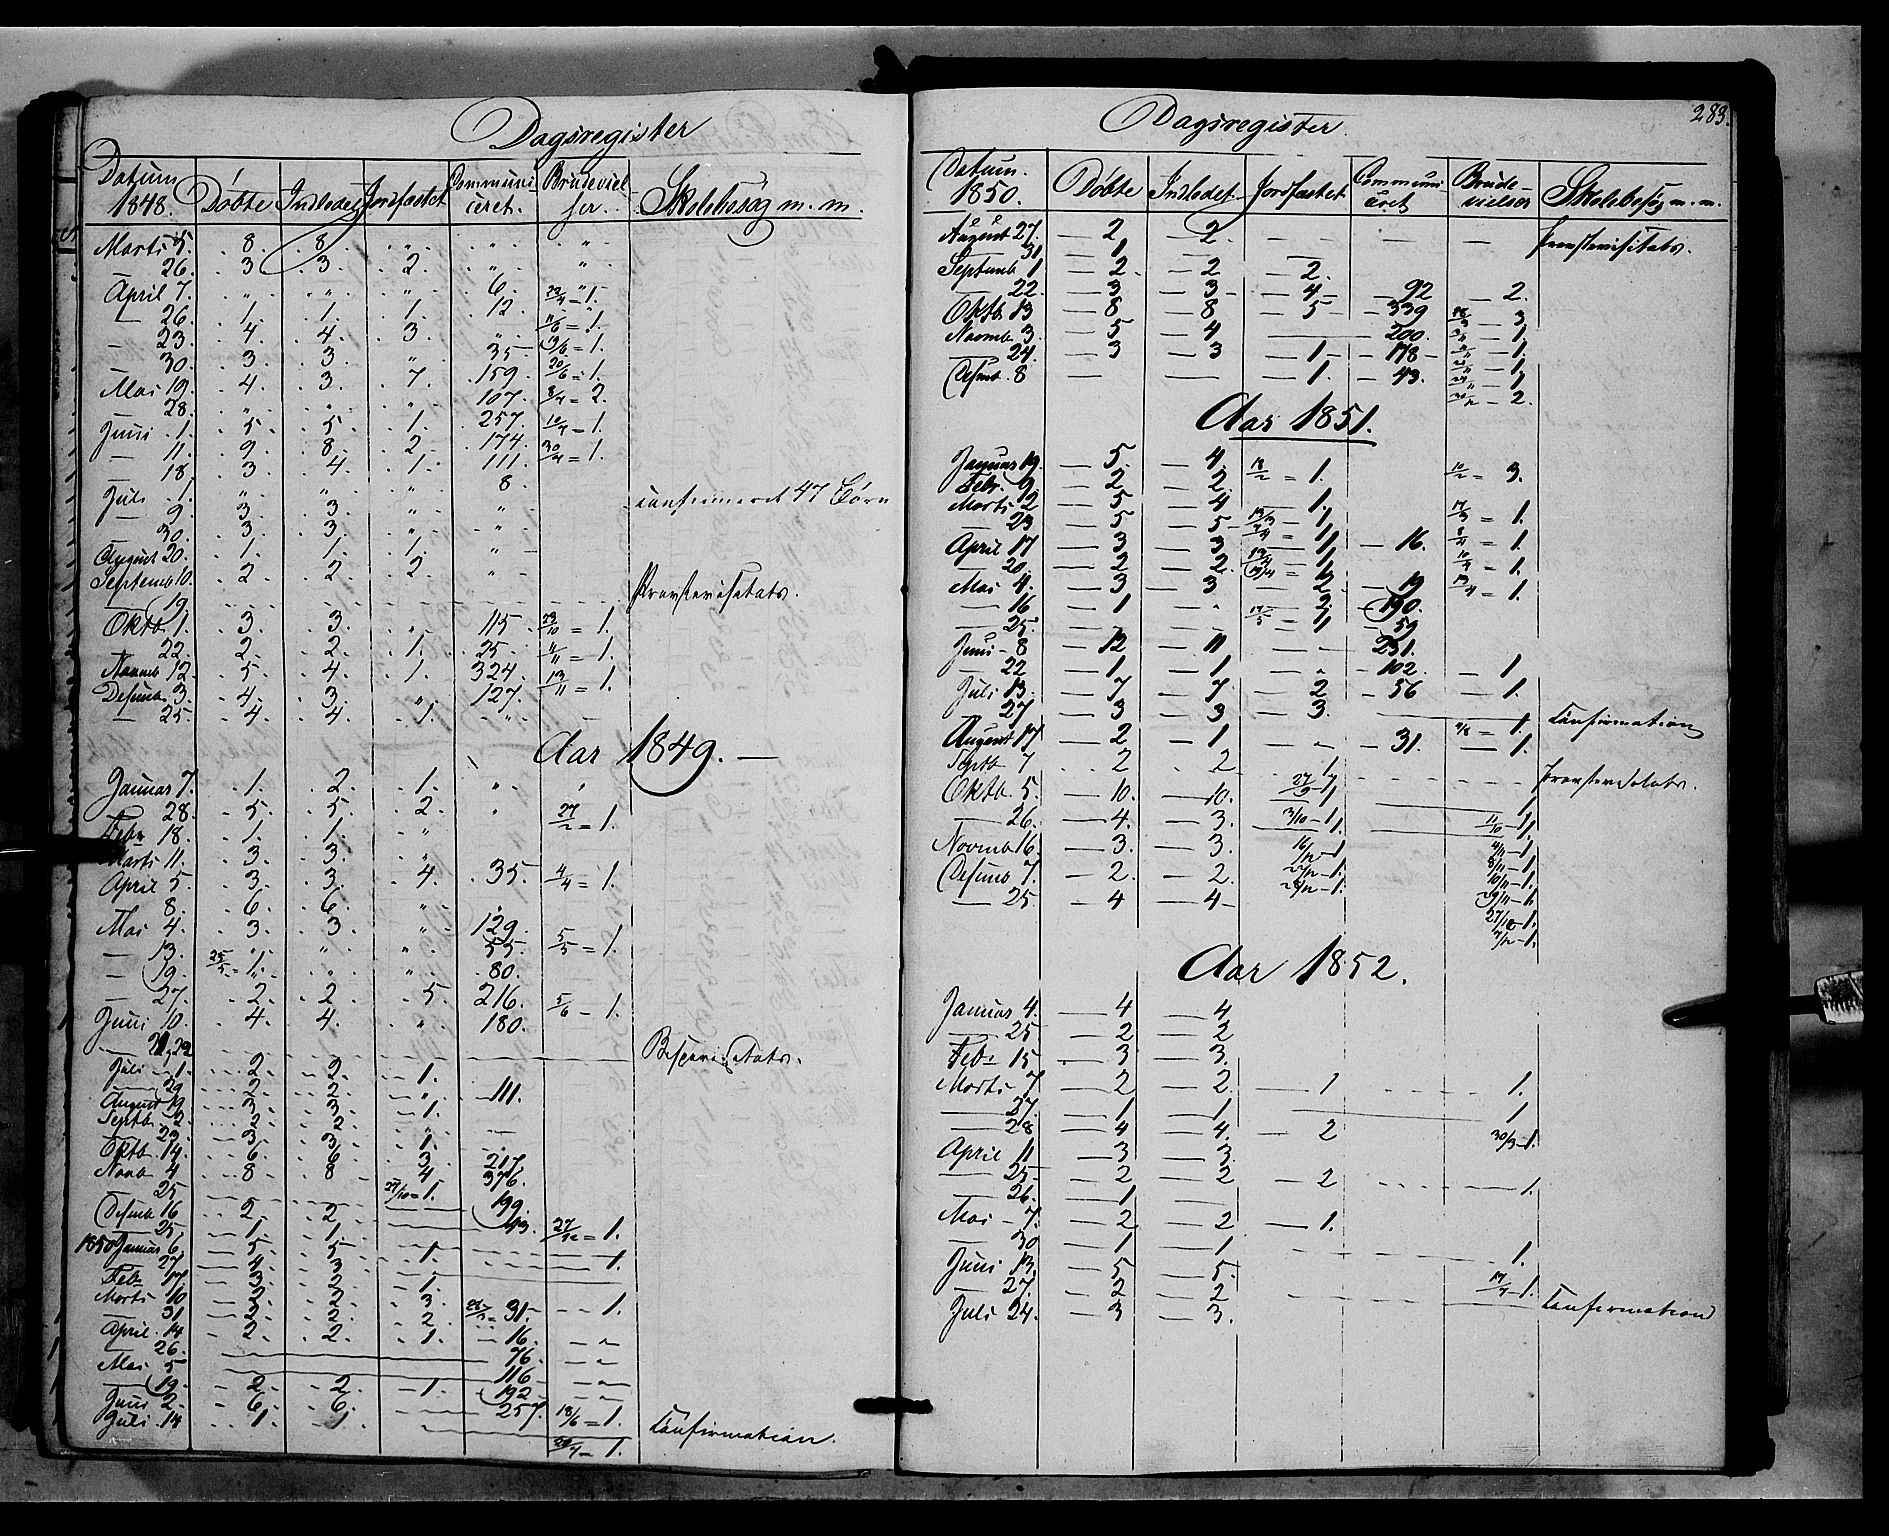 Dagsregister
Datum 1848. Döbte Indledet Jordfæstet Communiceret. Brudevielser. Skolebesög m. m.
Marts 5. 8. 8. " " "
— 26. 3. 3. 2. " "
April 7. " " " 6. "
— 26. 1. 1. 1. 12. 23/4 = 1.
— 23. 4. 4. 3. " 11/6 = 1.
— 30. 3. 3. " 35 3/6 = 1.
Mai 19. 4. 3. 7. 159. 20/6 = 1.
— 28. " " " 107. 8/7 = 2.
Juni 1. 5. 5. 1. 257. 10/7 = 1.
— 11. 9. 8. 2. 174. 30/7 = 1.
— 18. 3. 4. 1. 111.
Juli 1. " " " 8. confirmeret 47 Börn
— 9. 3. 3. " "
— 30. 3. 3. " "
August 20. 1. 1. 1. "
Septemb 10. 2. 2. 2. "
— 19. Provstevisitats.
Oktb. 1. 3. 3. " 115. 29/10 = 1.
— 22. 2. 2. 1. 25. 11/11 = 1.
Novmb 12. 5. 4. 1. 324. 13/11 = 1.
Desemb. 3. 4. 3. " 127.
— 25. 4. 4. 1. "
Aar 1849. —
Januar 7. 1. 2. 1. " "
— 28. 5. 5. 2. " 27/2 = 1.
Febr 18. 1. 1. "
Marts 11. 3. 3. "
April 5. 3. 3. 4. 35. 4/4 = 1.
— 8. 6. 6. " "
Mai 4. 3. 3. " 129.
— 13. " " " 55. 5/5 = 1.
— 19. 25/5 = 1. " " 80.
— 27. 2. 2. 5. 216. 5/6 - 1.
Juni 10. 4. 4. " 180.
— 21, 22 Bispevisitats.
Juli 1. 2. 2. 1.
— 29 2. 2. " 111.
August 19 3. 3. 1.
Septb. 2. 2. 2. "
— 23. 3. 3. 1. —
Oktb. 14. 6. 6. 3. 217.
Novb. 4 8. 8 4 376.
— 25 27/10 = 1.
Desemb 16 2. 2. 199.
— 25. 1. 1. 43. 27/12 = 1.
1850 Januar 6. 5. 5 1.
— 27 4. 3. 1.
Febr 17. 3. 2. 1.
Marts 10 2. 2. 3. 28/3 = 31. 1.
— 31 2. 2. 2.
April 14 2. 2. 1. 16. "
— 26. 76. "
Mai 5 116 "
— 19. 2. 2. 1. 192 "
Juni 2. 6. 6. 257. 18/6 = 1.
Juli 14 1 1. 28/7 = 1. Confirmation.
283.
Dagsregister.
Datum. 1850. Döbte Indledet Jordfæstet Communiceret Brudevielser Skolebesög m. m.
August 27. 2 2. — — — Provstevisitats.
— 31 1
Septemb 1 2 2 2.
— 22. 3 3 4 92 2.
Oktb. 13 8 8 5 339 3
Novmb. 3. 5 4 200. 1.
— 24. 3 3 1 178 1
Desmb. 8 — — 1. 43. 1
2.
Aar 1851.
Januar 19. 5. 4. 18/2 = 1. 10/2 = 3.
Febr. 9. 2. 2
Marts 12 5 4 1. 17/3 = 1.
— 23 5 5 1.
April 17 3 3 1 16. 8/4 = 1.
— 20. 2 2. 1 10/4 = 1.
Mai 4. 3 3 2 19 1.
— 16 1 " 2. 190.
— 25. — — 1 59
Juni 8 12 11 — 231.
— 22 1 1 " 102. 1
Juli 13. 7 7. 2 56 1.
— 27 3 3 3. 1. Confirmation
August 17 2 1 " 31. 1.
Septb 7 2 2 1 Provstevisitats.
Oktb. 5. 10. 10. 1 1
— 26. 4. 3. 3/10 - 1. 11/10 - 1.
Novmb 16. 3. 3. 16/12 - 1 4/11 - 1.
Desemb 7. 2. 2. 1. 8/11 - 1.
— 25 4 4 1. 10/11 - 1.
29/11 - 1.
27/12 - 1.
7/12 - 1.
Aar 1852.
Januar 4. 4 4
— 25 2 2
Febr 15 3 3.
Marts 7 2 2 1 1.
— 27. 1 1 1
— 28 4 4. 2 30/3 - 1.
April 11 3 3.
— 25 2 2 2 1.
— 26. 1
Mai 7. 2 2 1.
— 30 1 1 1.
Juni 13. 5 5.
— 27. 2 2 1.
Juli 24. 3 3. Confirmation